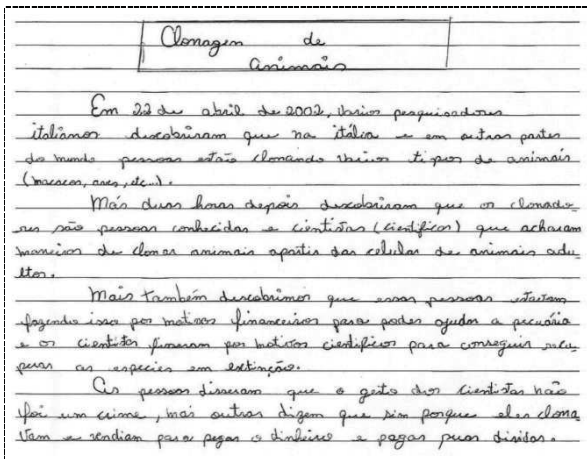 Clonagem de
animais
Em 22 de abril de 2002, vários pesquisadores
italianos descobriram que na itália e em outras partes
do mundo pessoas estão clonando vários tipos de animais
(macacos, aves, etc...).
Mas duas horas depois descobriram que os clonado
res são pessoas conhecidas e cientistas (científicos) que acharam
maneiras de clonar animais apartis das celulas de animais adu
ltos.
Mais também descobrimos que essas pessoas estavam
fazendo isso por motivos financeiros para poder ajudar a pecuária
e os cientistas fizeram por motivos científicos para conseguir recu
perar as especies em extinção.
As pessoas disseram que o gesto dos cientistas não
foi um crime, mas outros dizem que sim porque eles clona
vam e vendiam para pegar o dinheiro e pagar suas dividas.